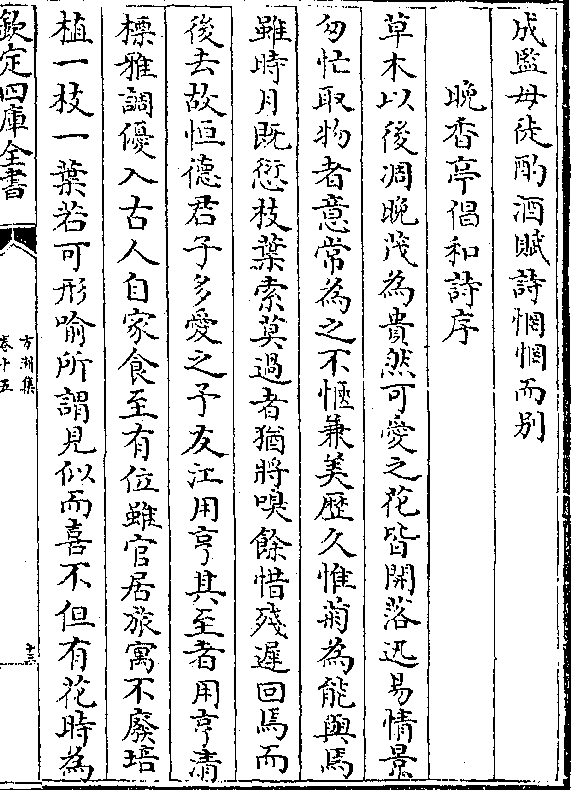 成監毋徒酌酒賦詩悃悃而别
晚香亭倡和詩序
草木以後凋晚茂為貴然可愛之花皆開落迅易情景
匆忙取物者意常為之不愜兼美歴久惟菊為能與焉
雖時月既愆枝葉索莫過者猶將嗅餘惜殘遲回焉而
後去故恒德君子多愛之予友江用亨其至者用亨清
標雅調優入古人自家食至有位雖官居旅寓不廢培
植一枝一葉若可形喻所謂見似而喜不但有花時為
欽定四庫全書
方洲集
卷十五
十三